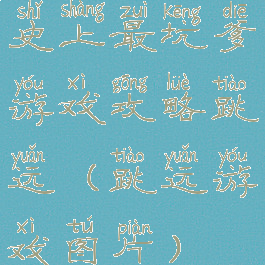 shǐ shàng zuì kēng diē
史上最坑爹
yóu xì gōng lüè tiào
游戏攻略跳
yuǎn tiào yuǎn yóu
远（跳远游
xì tú piàn
戏图片）